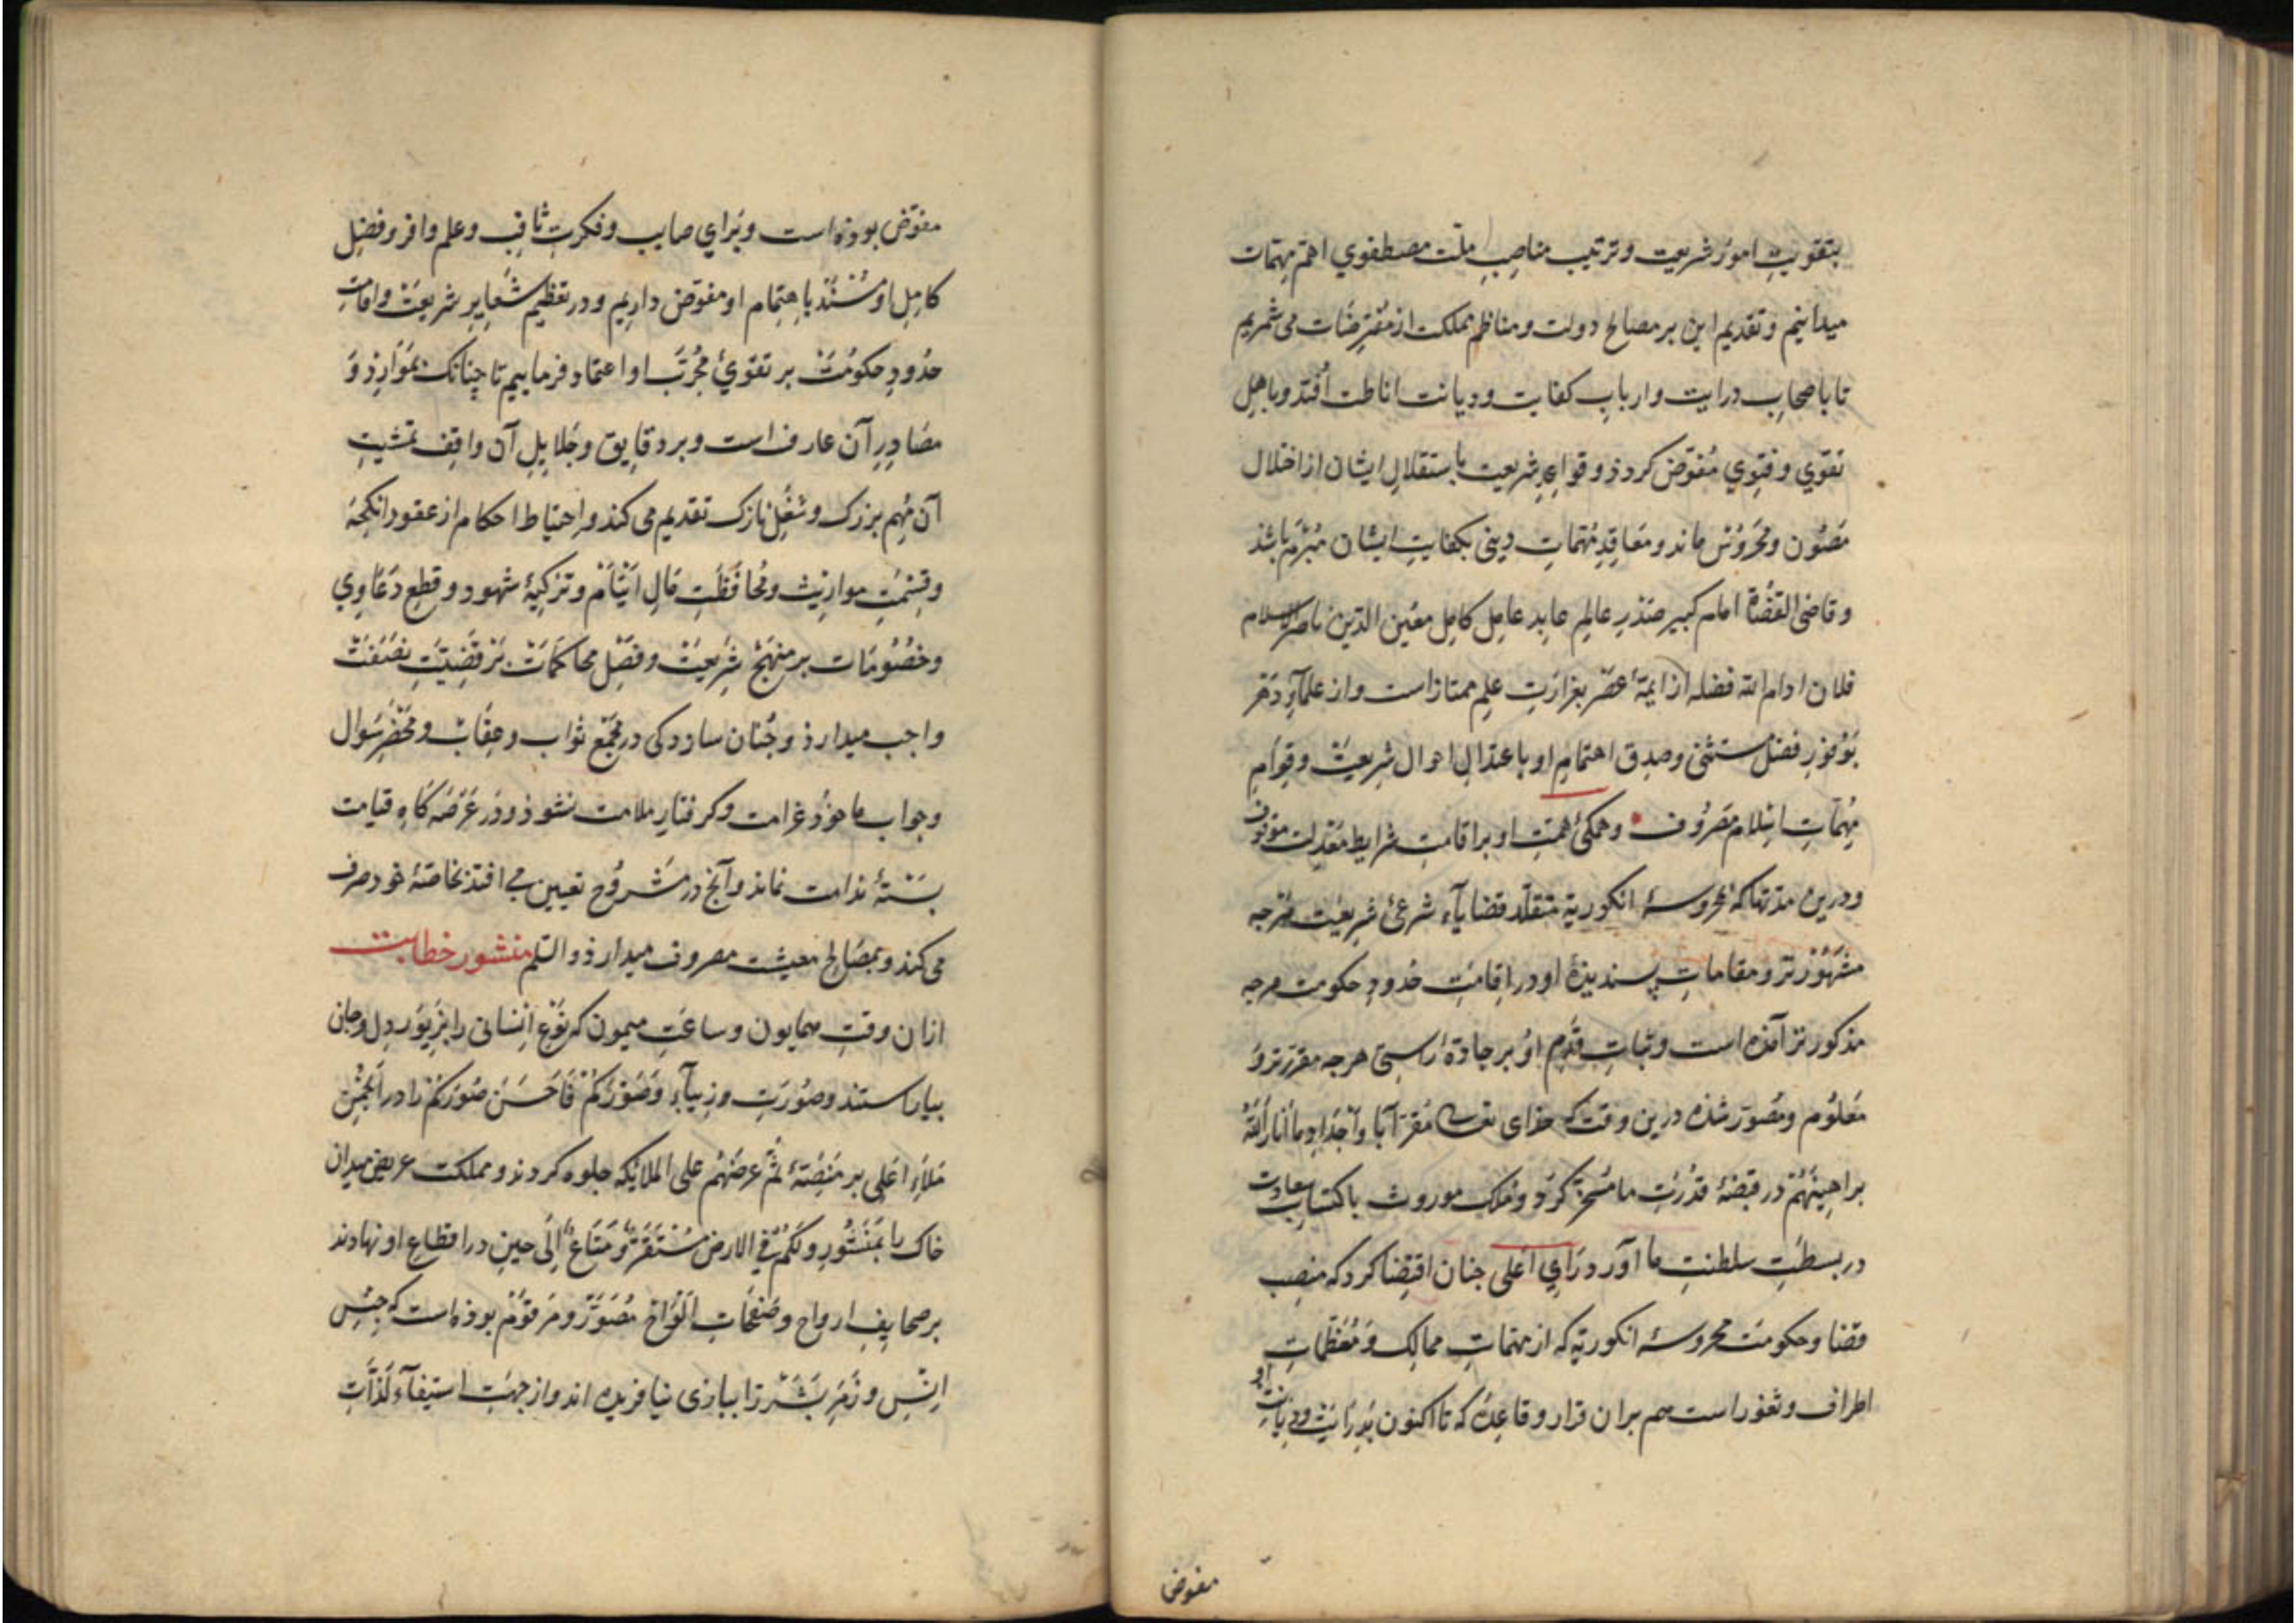 بتقویتِ امور شریعت و ترتیب مناصبِ ملّت مصطفوی اهمّ مهمّات
میدانیم و تقدیم این بر مصالح دولت و مناظم مملکت از مفترضات می شمریم
تا باصحابِ درایت و اربابِ کفایت و دیانت اناطت اُفتد و باهلِ
تقوی و فتوی مُفوّض کردذ و قواعدِ شریعت باستقلالِ ایشان از اختلال
مَصُون و محروُس ماند و مَعاقِدِ مُهمّاتِ دینی بکفایتِ ایشان مُبْرَم باشذ
و قاضی القضُاة امام کبیر صَدْر عالِم عابِد عامِل کامِل معین الدّین ناصر الاسلام
فلان ادام الله فضله از ایمّۀ عصْر بغزارَتِ علم ممتاز است و از علمآءِ دَهْر
بوُفورِ فضل مستثنی و صدِق اهتمامِ او باعتدالِ احوال شریعت و قوامِ
مُهِمّاتِ اسْلام مَصْرُوف و همکیُ همّتِ او بر اقامتِ شرایط مَعْدِلت موقوُف
و درین مدّتها که محروسۀ انکوریّه متقلّد قضایآءِ شرعیُ شریعَت هرجه
مَشْهُوْرتر و مقاماتِ پسندیذۀ او در اِقامَتِ حُدودِ حکومت هرجه
مذکورتر آمذه است و ثباتِ قَدَمِ اوُ بر جادّۀ راستی هرجه مقرّرتر وَ
مَعلوُم و مُصوّر شذه درین وقت که خذای تعالی مَقرّ آبا وَ اَجْدادِ ما اَنارَ اللّهُ
براهِیْنَهُمْ در قبضۀ قُدْرَتِ ما مُسَخّر کرد و مُلک موروث باکتسابِ سعادت
در بسطَتِ سلطنتِ ما آورد رَایِ اَعلی جنان اقتِضا کرد که منصِبِ
قضا و حکومَت محروسۀ انکوریّه که از مهمّاتِ ممالِک وَ مُعْظَماتِ
اطراف و ثغور است هم بران قرار و قاعِدۀ که تا اکنون بدِرَایَت و دیانتِ او
مفوض
مفوّض بوذه است و بَرایِ صایب و فکرتِ ثاقِب و علم وافر و فضلِ
کامِل او مُسْنَد باهتِمام او مفوّض داریم و در تعظیم شعایرِ شریعَتْ و اقامتِ
حدُودِ حکومَتْ بر تقویُ مُجرّبَ او اعتماد فرماییم تا جنانک بمَوَارِد وَ
مصَادِرِ آن عارف است و بر دقایق و جَلایِلِ آن واقِف تمشیتِ
آن مُهِمِ بزرک و شغْل نازک تقدیم می کند و احتیاط احکام از عقودِ انکحَۀ
و قِسْمَتِ موارِیث و مُحافَظَتِ مَالِ ایْتَامْ و تزکیۀ شهود و قطع دَعَاویِ
و خصُوُمَات بر منهَج شرَیعَتْ و فصْل محاکمَاتْ بَرْ قضیّتِ نَصَفَتْ
واجب میدارذ و جُنان سازد کی در مَجْمَع ثواب و عِقابْ و مَحْضَرِ سَوال
و جواب ماخوُذِ غرامت و کرفتارِ ملامت نشوذ و دَر عَرْصَه کَاهِ قیامت
بسَتۀ نذامت نماند و آنج در مَشروُح تعیین می افتذ بخاصّۀ خود صرف
می کند و بمصَالح معیشت مصروف میدارذ و السّلم منشور خطابت
ازان وقتِ همایون و ساعَتِ میمون که نَوْعِ اِنسانی را بزِیوَرِ دِل و جان
بیاراستند و صُورَتِ و زیبآءِ وَ صَوَّرَکُمْ فَاَحْسَنَ صُوَرَکُمْ را در اَنْجُمَنِ
مَلاءِ اَعْلی بر مَنَصّۀ ثُمّ عَرَضَهُمْ علی الملایکه جلوه کردند و مملکت عریض میدان
خاک را بمَنْشُورِ وَلَکُمْ فی الارض مُسْتَقَرٌّ وَ مَتَاعٌ اِلَی حین در اقطاعِ او نهادند
بر صحایفِ ارواح و صَفحَاتِ اَلْوَاح مُصَوَّرْ و مَرقوُمْ بوده است که جِنْسِ
اِنْسِ و زُمَرِ بَشَرْ را ببازی نیافریده اند و از جهتِ استیفآءِ لَذّاتِ